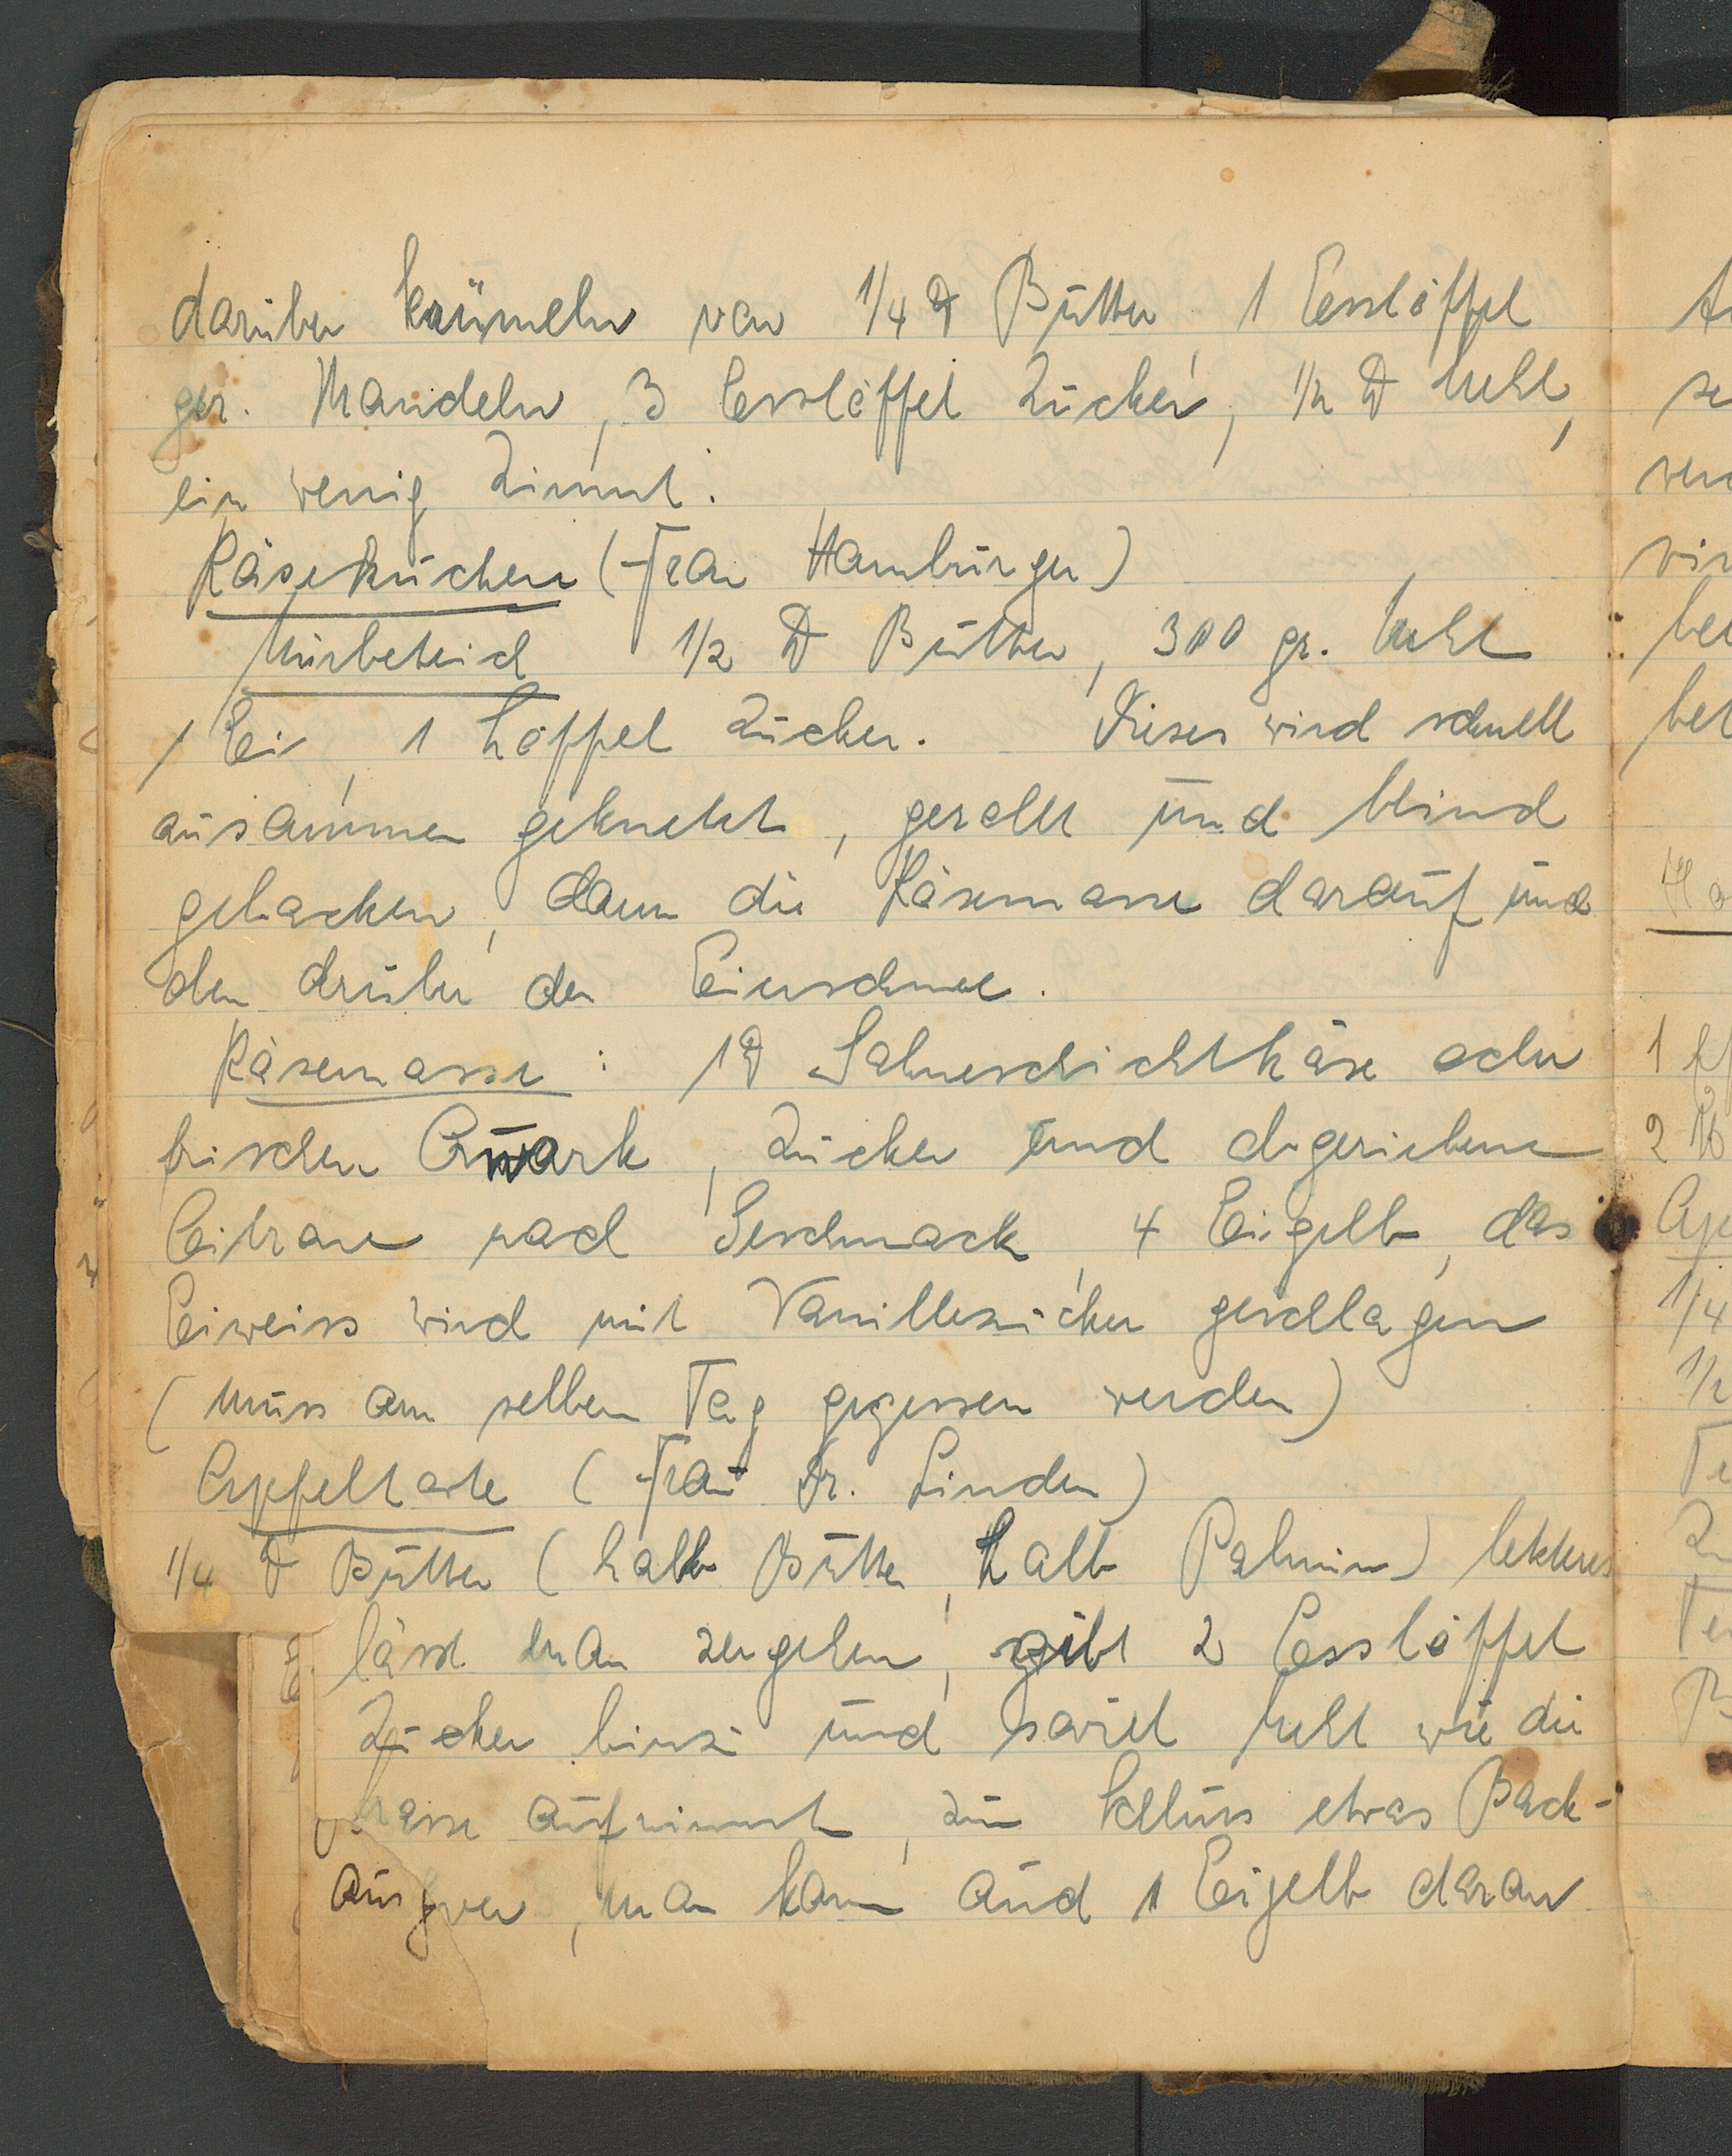 darüber krümeln von 1/4 ℔ Butter, 1 Esslöffel
ger. Mandeln, 3 Esslöffel Zucker, 1/2 ℔ Mehl,
ein wenig Zimmt.
Käsekuchen (Frau Hamburger)
Mürbeteich 1/2 ℔ Butter, 300 gr. Mehl
1 Ei, 1 Löffel Zucker. Dieses wird schnell
zusammen geknetet, gerollt und blind
gebacken, dann die Käsemasse darauf und
den drüber den Eierschnee.
Käsemasse: 1 ℔ Sahneschichtkäse oder
frischen Quark, Zucker und abgeriebene
Citrone nach Geschmack, 4 Eigelb, das
Eiweiss wird mit Vanillezucker geschlagen
(Muss am selben Tag gegessen werden)
Apfeltorte (Frau Dr. Linden)
1/4 ℔ Butter (halb Butter, halb Palmin) letzteres
lässt man zergehen, gibt 2 Esslöffel
Zucker hinzu und soviel Mehl wie die
Masse aufnimmt, zum Schluss etwas Back-
, man kann auch 1 Eigelb daran
1/4
1/2